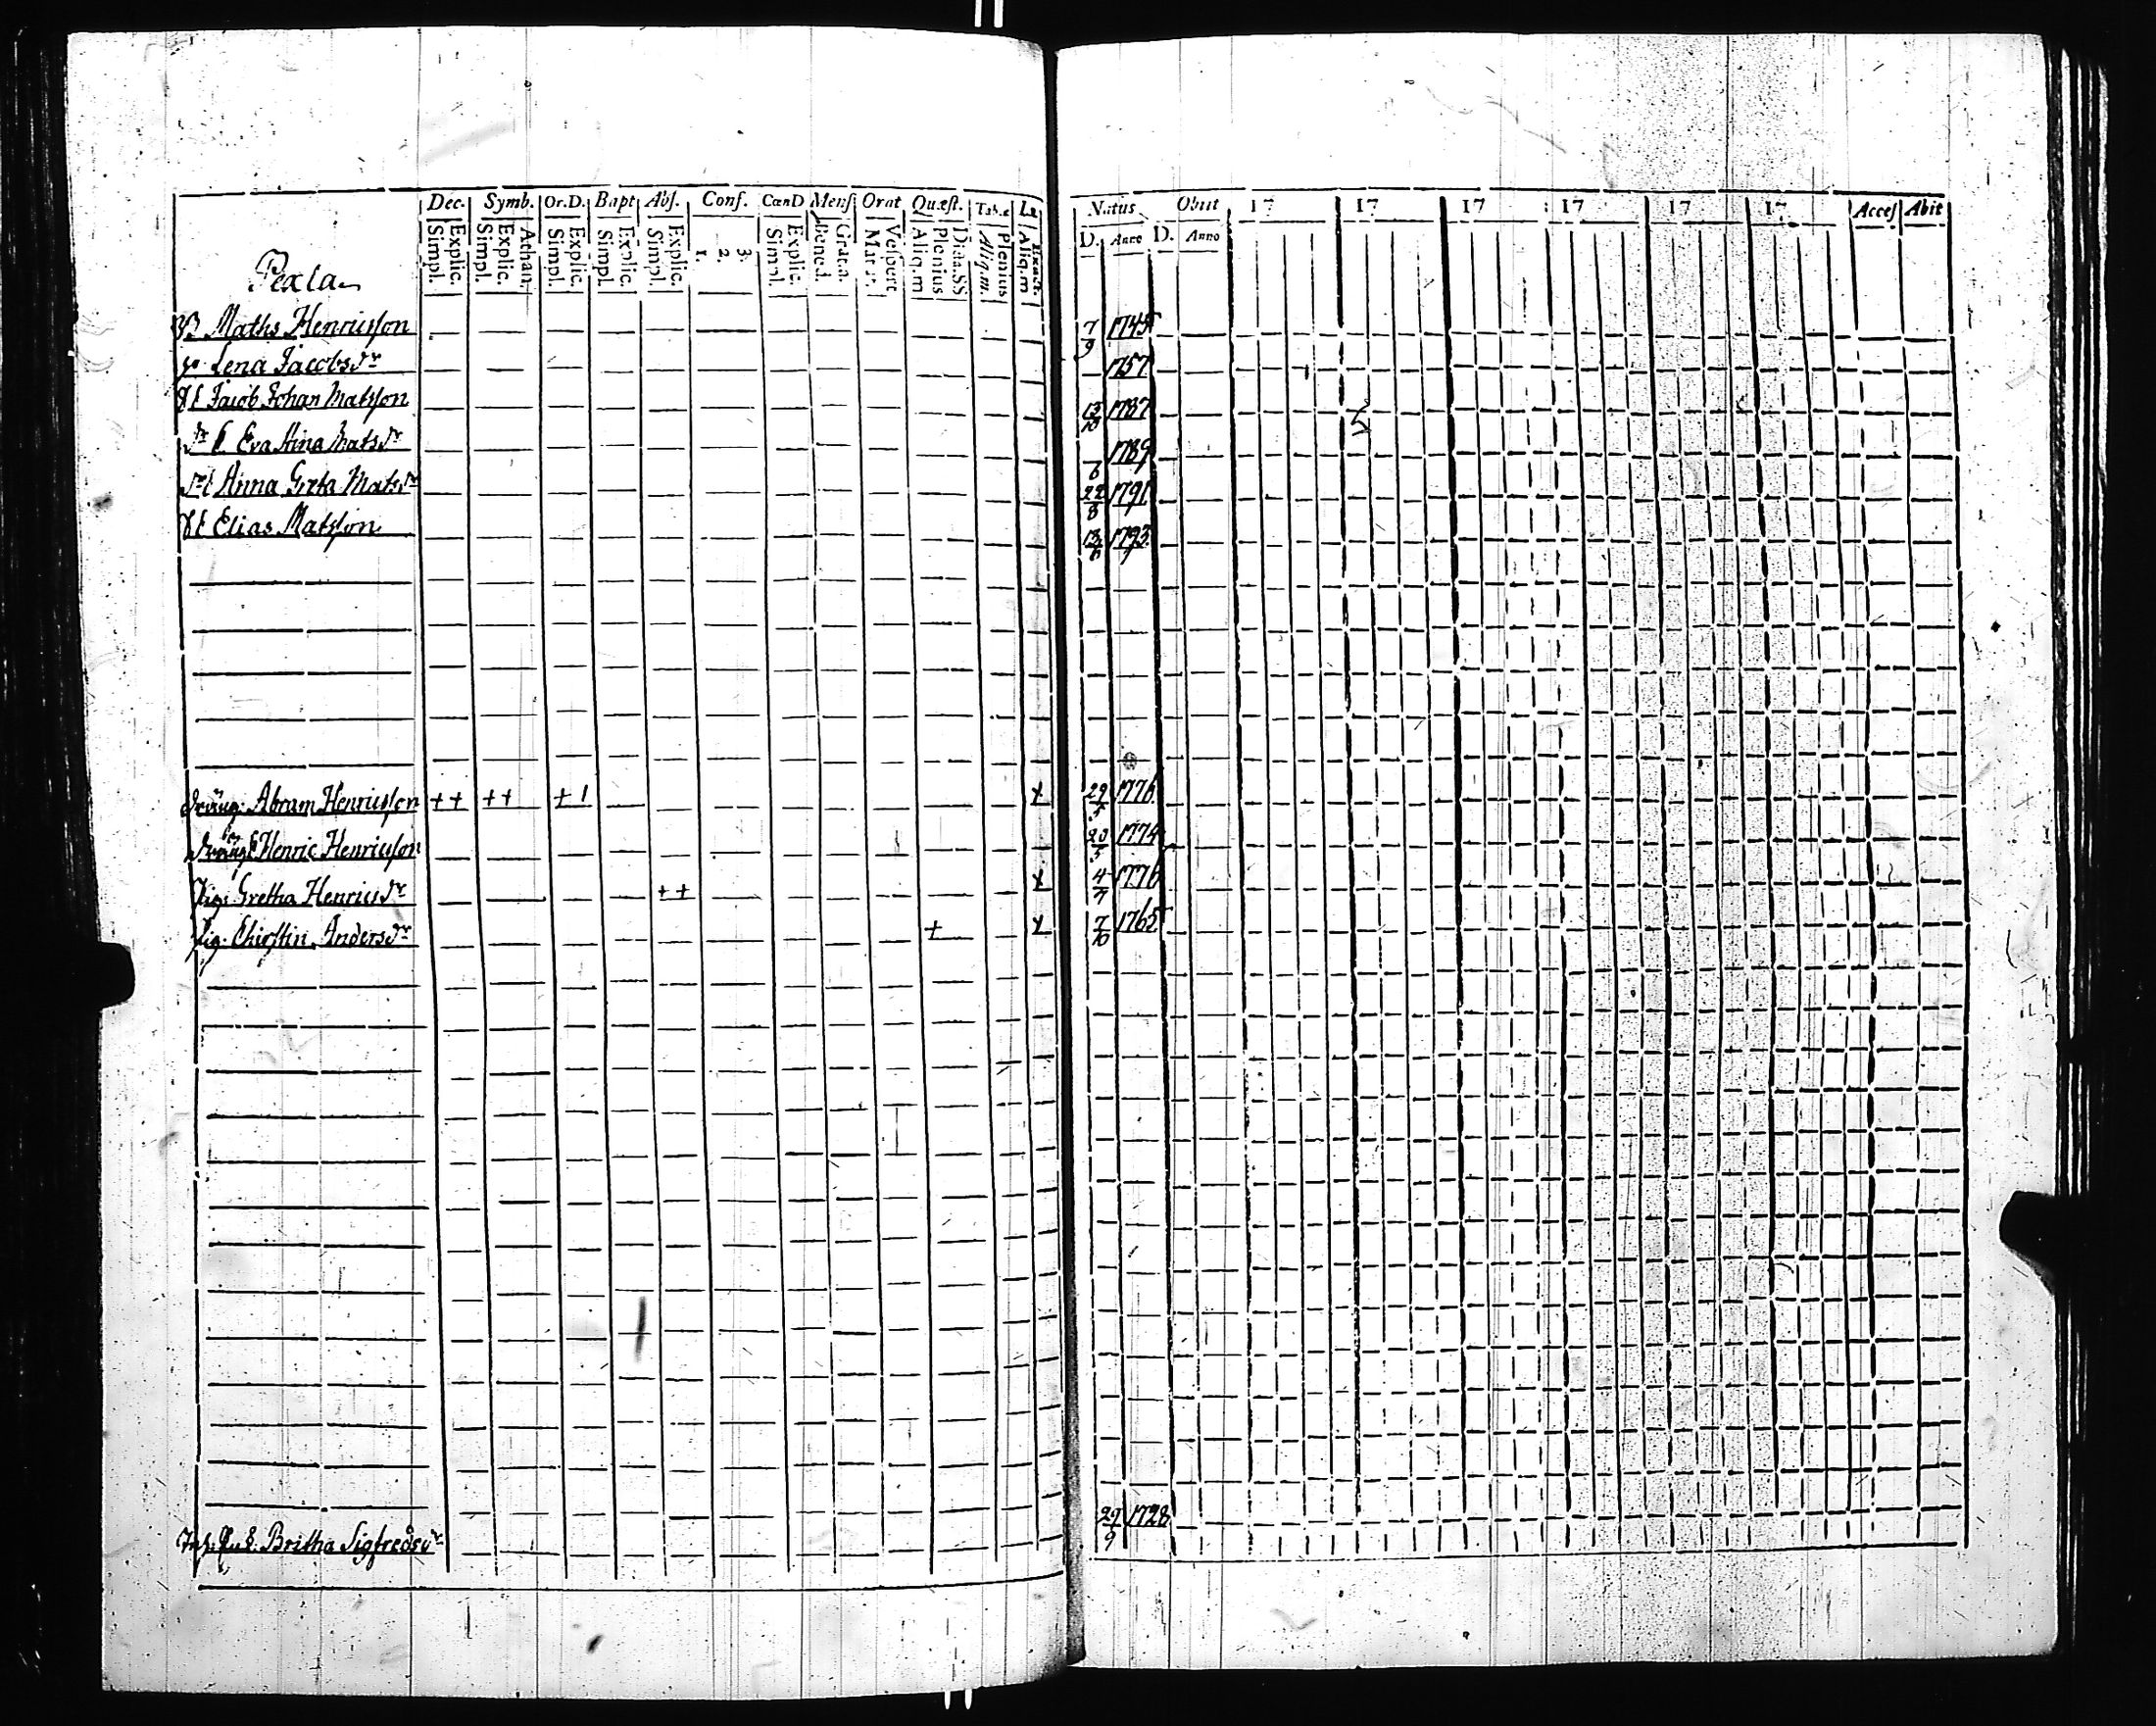 Dec. Symb. Or.D. Bapt Abs. Conf. CœnD Mens Orat Quæst. Tab.æ
Explic. Simpl. Athan. Explic. Simpl. Explic. Simpl. Explic. Simpl. Explic. Simpl. 3. 2. 1. Explic. Simpl. Grat.a. Bened. Vespert Mat. Dicta.SS Plenius Aliq.m Plenius Aliq.m. Aliq.m
Natus Obiit 17 17 17 17 17 17 Access Abit
D. Anno D. Anno
Pexla
Maths Henricsson 7/9 1745
Lena Jacobsdr 1757
Jacob Johan Matsson 1787
Eva Stina Matsdr 6 1789
Anna Greta Matsdr 22/8 1791
Elias Matsson 13/6 1793
dräng: Abram Henricsson ++ ++ +1 x 29/5 1776
Henric Henricsson 20/5 1774
Pig: Gretha Henricsdr ++ x 4/7 1776
Pig: Chirstin Andersdr + x 7/10 1765
Britha Sigfredsdr 29/9 1728